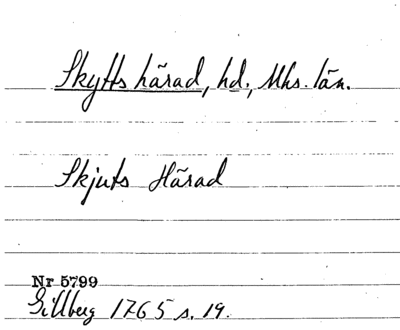 Skytts härad, hd., Mhs. län.
Skjuts Härad
Nr 5799
Gillberg 1765 s. 19.